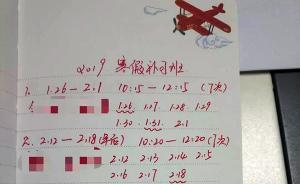 2019 寒假补习班
1. 1.26 — 2.1 10:15 — 12:15 (7次)
1.26 1.27 1.28 1.29
1.30 1.31 2.1
2. 2.12 — 2.18 (年后) 10:20 — 12:20 (7次)
2.12 2.13 2.14 2.15
2.16 2.17 2.18